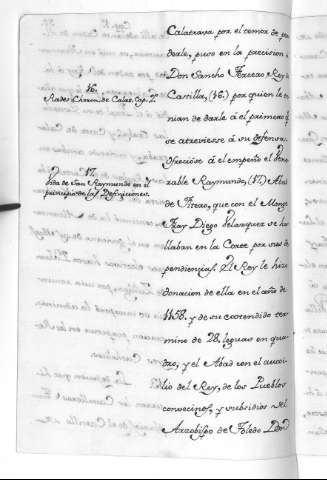 Calatrava por el temor de per
derle, puso en la precision á
Don Sancho Tercero Rey de
Castilla, (16.) por quien le te
nian de darle á el primero q.
se atreviesse á su defensa.
Ofreciose á el empeño el Vene
rable Raymundo, (17.) Abad
de Fitero, que con el Monge
Fray Diego Velazquez se ha
llaban en la Corte por sus de
pendencias. El Rey le hizo
donacion de ella en el año de
1158. y de su contenido ter
mino de 28. leguas en qua
dro; y el Abad con el auxi
lio del Rey, de los Pueblos
convecinos, y subsidios del
Arzobispo de Toledo Don
16.
Rades Chron. de Calat. Cap. 2.
17.
Vida de San Raymundo en el
principio de las Difiniciones.